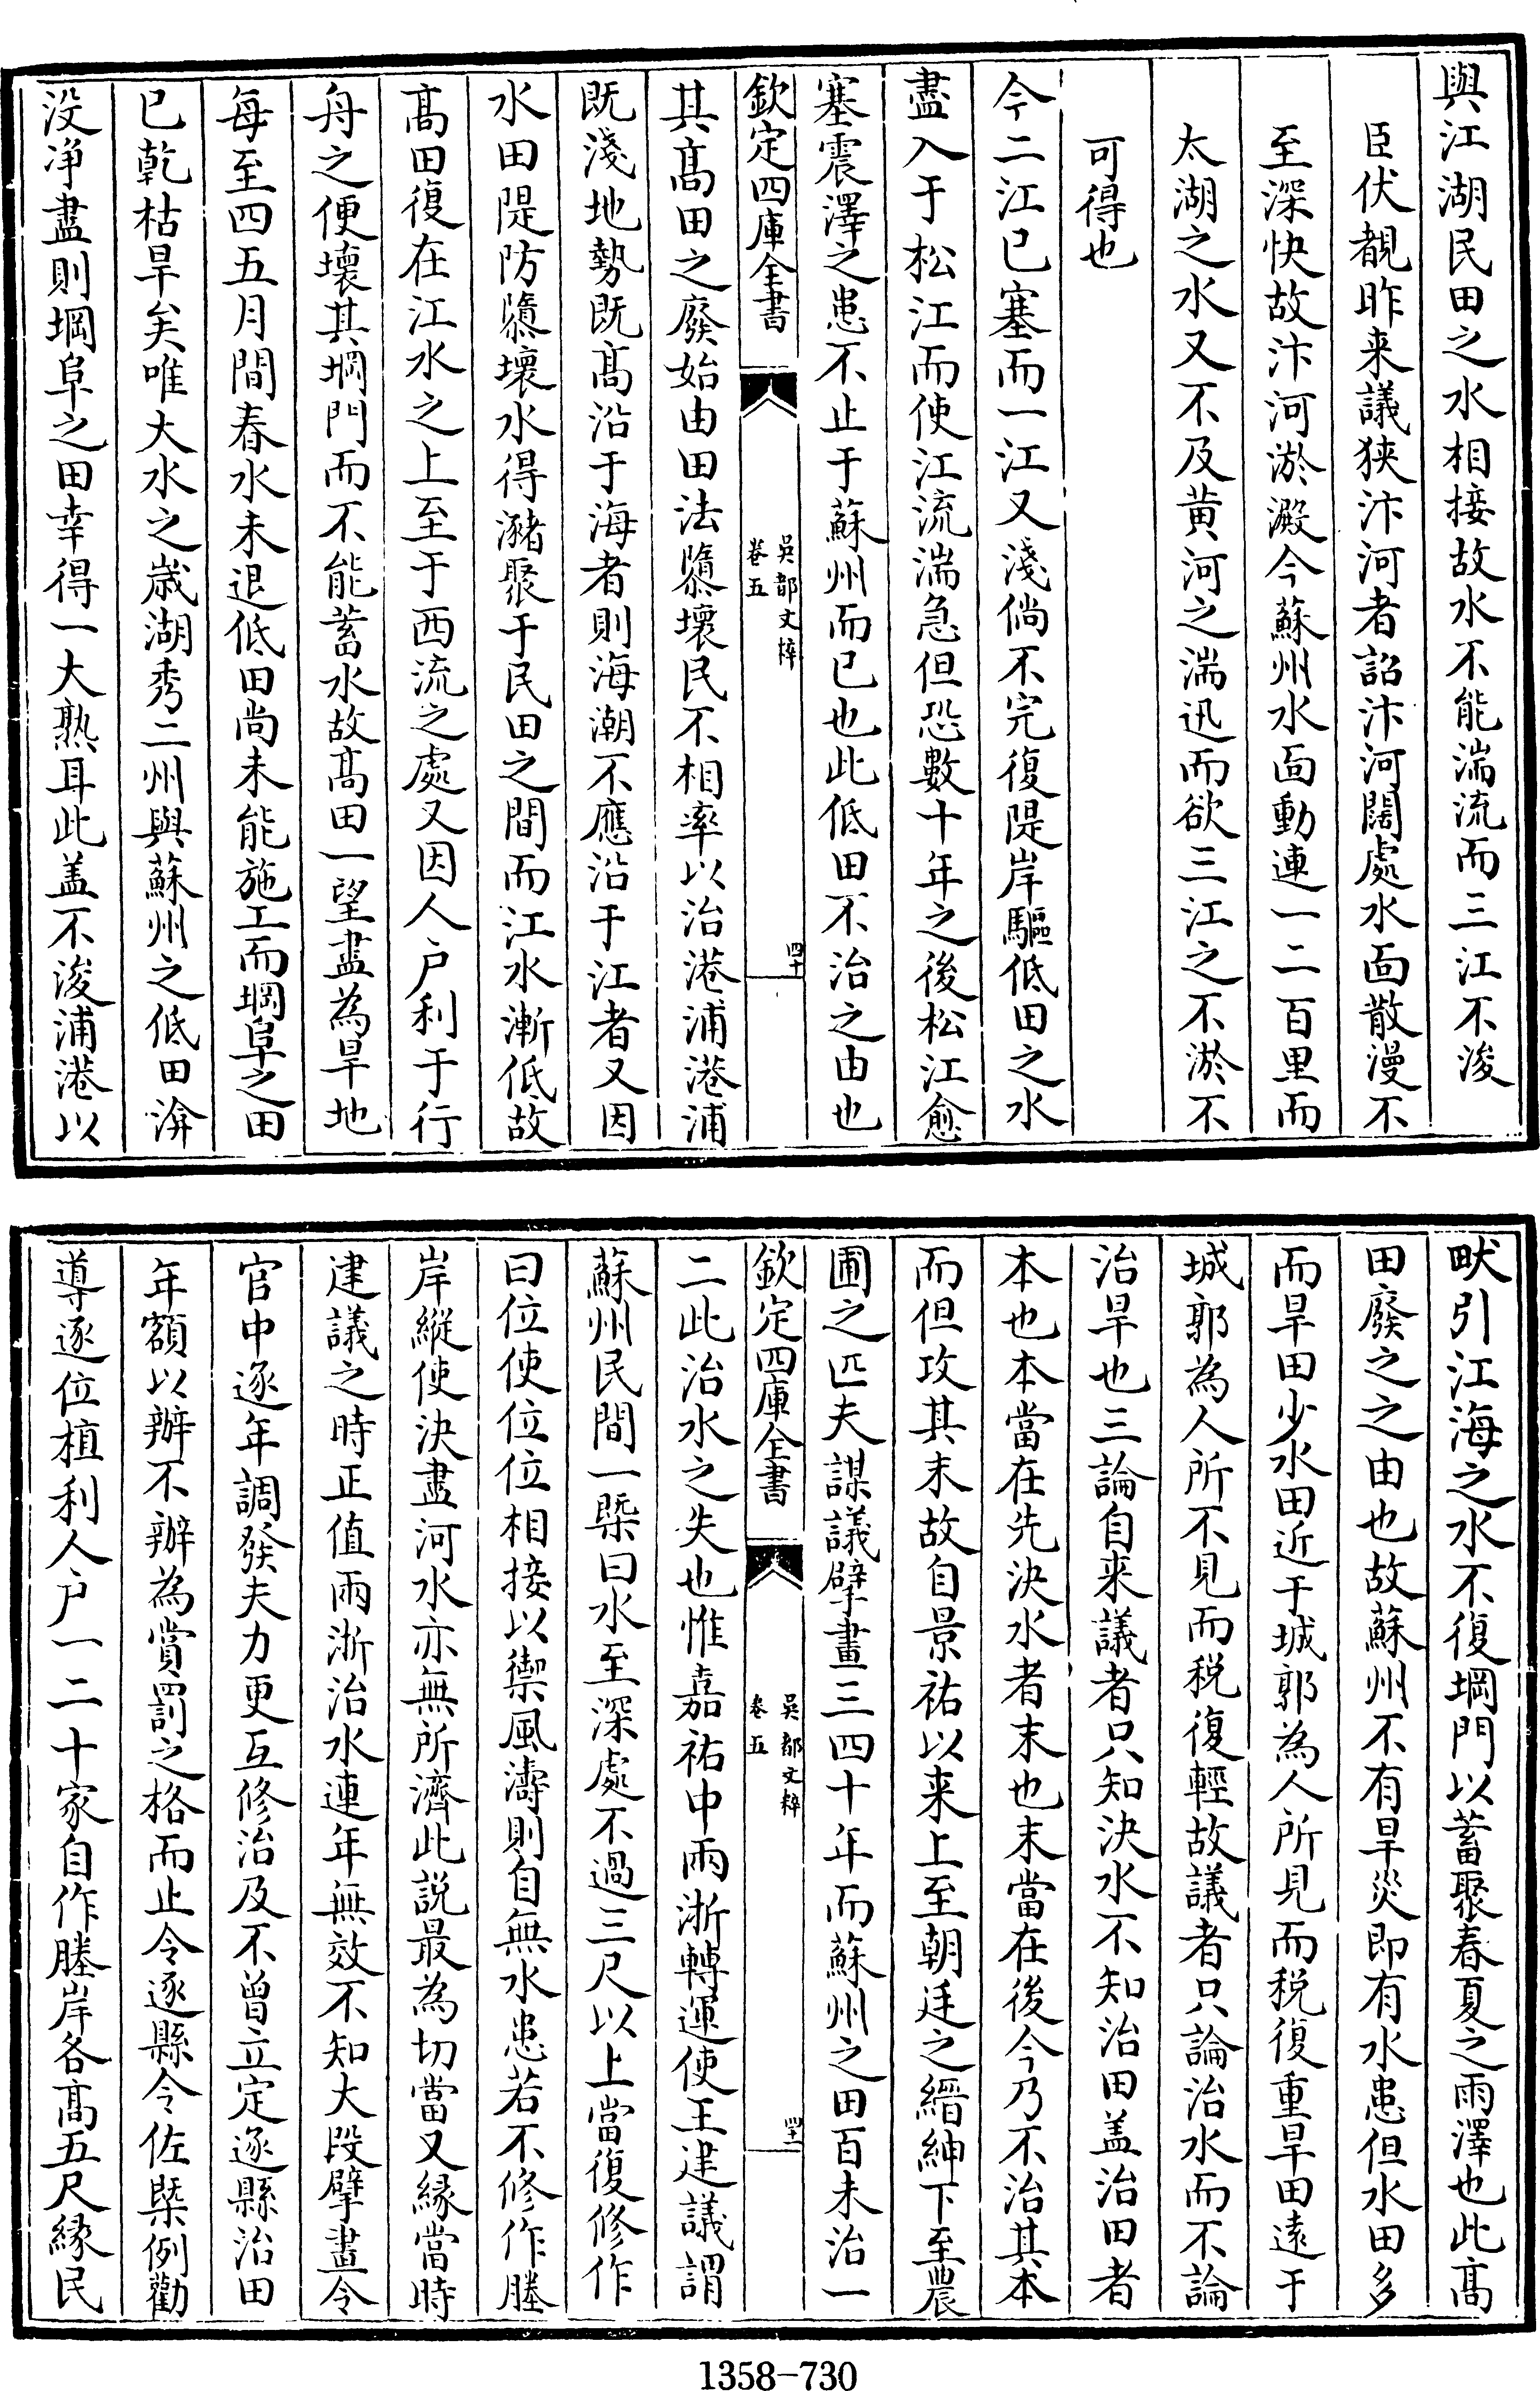 與江湖民田之水相接故水不能湍流而三江不浚
臣伏覩昨来議狹汴河者詔汴河闊處水面散漫不
至深快故汴河淤澱今蘇州水面動連一二百里而
太湖之水又不及黄河之湍迅而欲三江之不淤不
可得也
今二江已塞而一江又淺倘不完復隄岸驅低田之水
盡入于松江而使江流湍急但恐數十年之後松江愈
塞震澤之患不止于蘇州而已也此低田不治之由也
欽定四庫全書
吳都文粹
卷五
四十
其髙田之廢始由田法隳壞民不相率以治港浦港浦
既淺地勢既髙沿于海者則海潮不應沿于江者又因
水田隄防隳壞水得瀦聚于民田之間而江水漸低故
髙田復在江水之上至于西流之處又因人户利于行
舟之便壞其堈門而不能蓄水故髙田一望盡為旱地
每至四五月間春水未退低田尚未能施工而堈阜之田
已乾枯旱矣唯大水之歳湖秀二州與蘇州之低田渰
没净盡則堈阜之田幸得一大熟耳此盖不浚浦港以
畎引江海之水不復堈門以蓄聚春夏之雨澤也此髙
田廢之之由也故蘇州不有旱災即有水患但水田多
而旱田少水田近于城郭為人所見而税復重旱田逺于
城郭為人所不見而税復輕故議者只論治水而不論
治旱也三論自来議者只知決水不知治田盖治田者
本也本當在先決水者末也末當在後今乃不治其本
而但攻其末故自景祐以来上至朝廷之縉紳下至農
圃之匹夫謀議擘畫三四十年而蘇州之田百未治一
欽定四庫全書
吳都文粹
卷五
四十一
二此治水之失也惟嘉祐中兩浙轉運使王建議謂
蘇州民間一槩曰水至深處不過三尺以上當復修作
曰位使位位相接以禦風濤則自無水患若不修作塍
岸縱使決盡河水亦無所濟此説最為切當又縁當時
建議之時正值兩浙治水連年無效不知大段擘畫令
官中逐年調發夫力更互修治及不曾立定逐縣治田
年額以辦不辦為賞罰之格而止令逐縣令佐槩例勸
導逐位植利人户一二十家自作塍岸各髙五尺縁民
1358-730